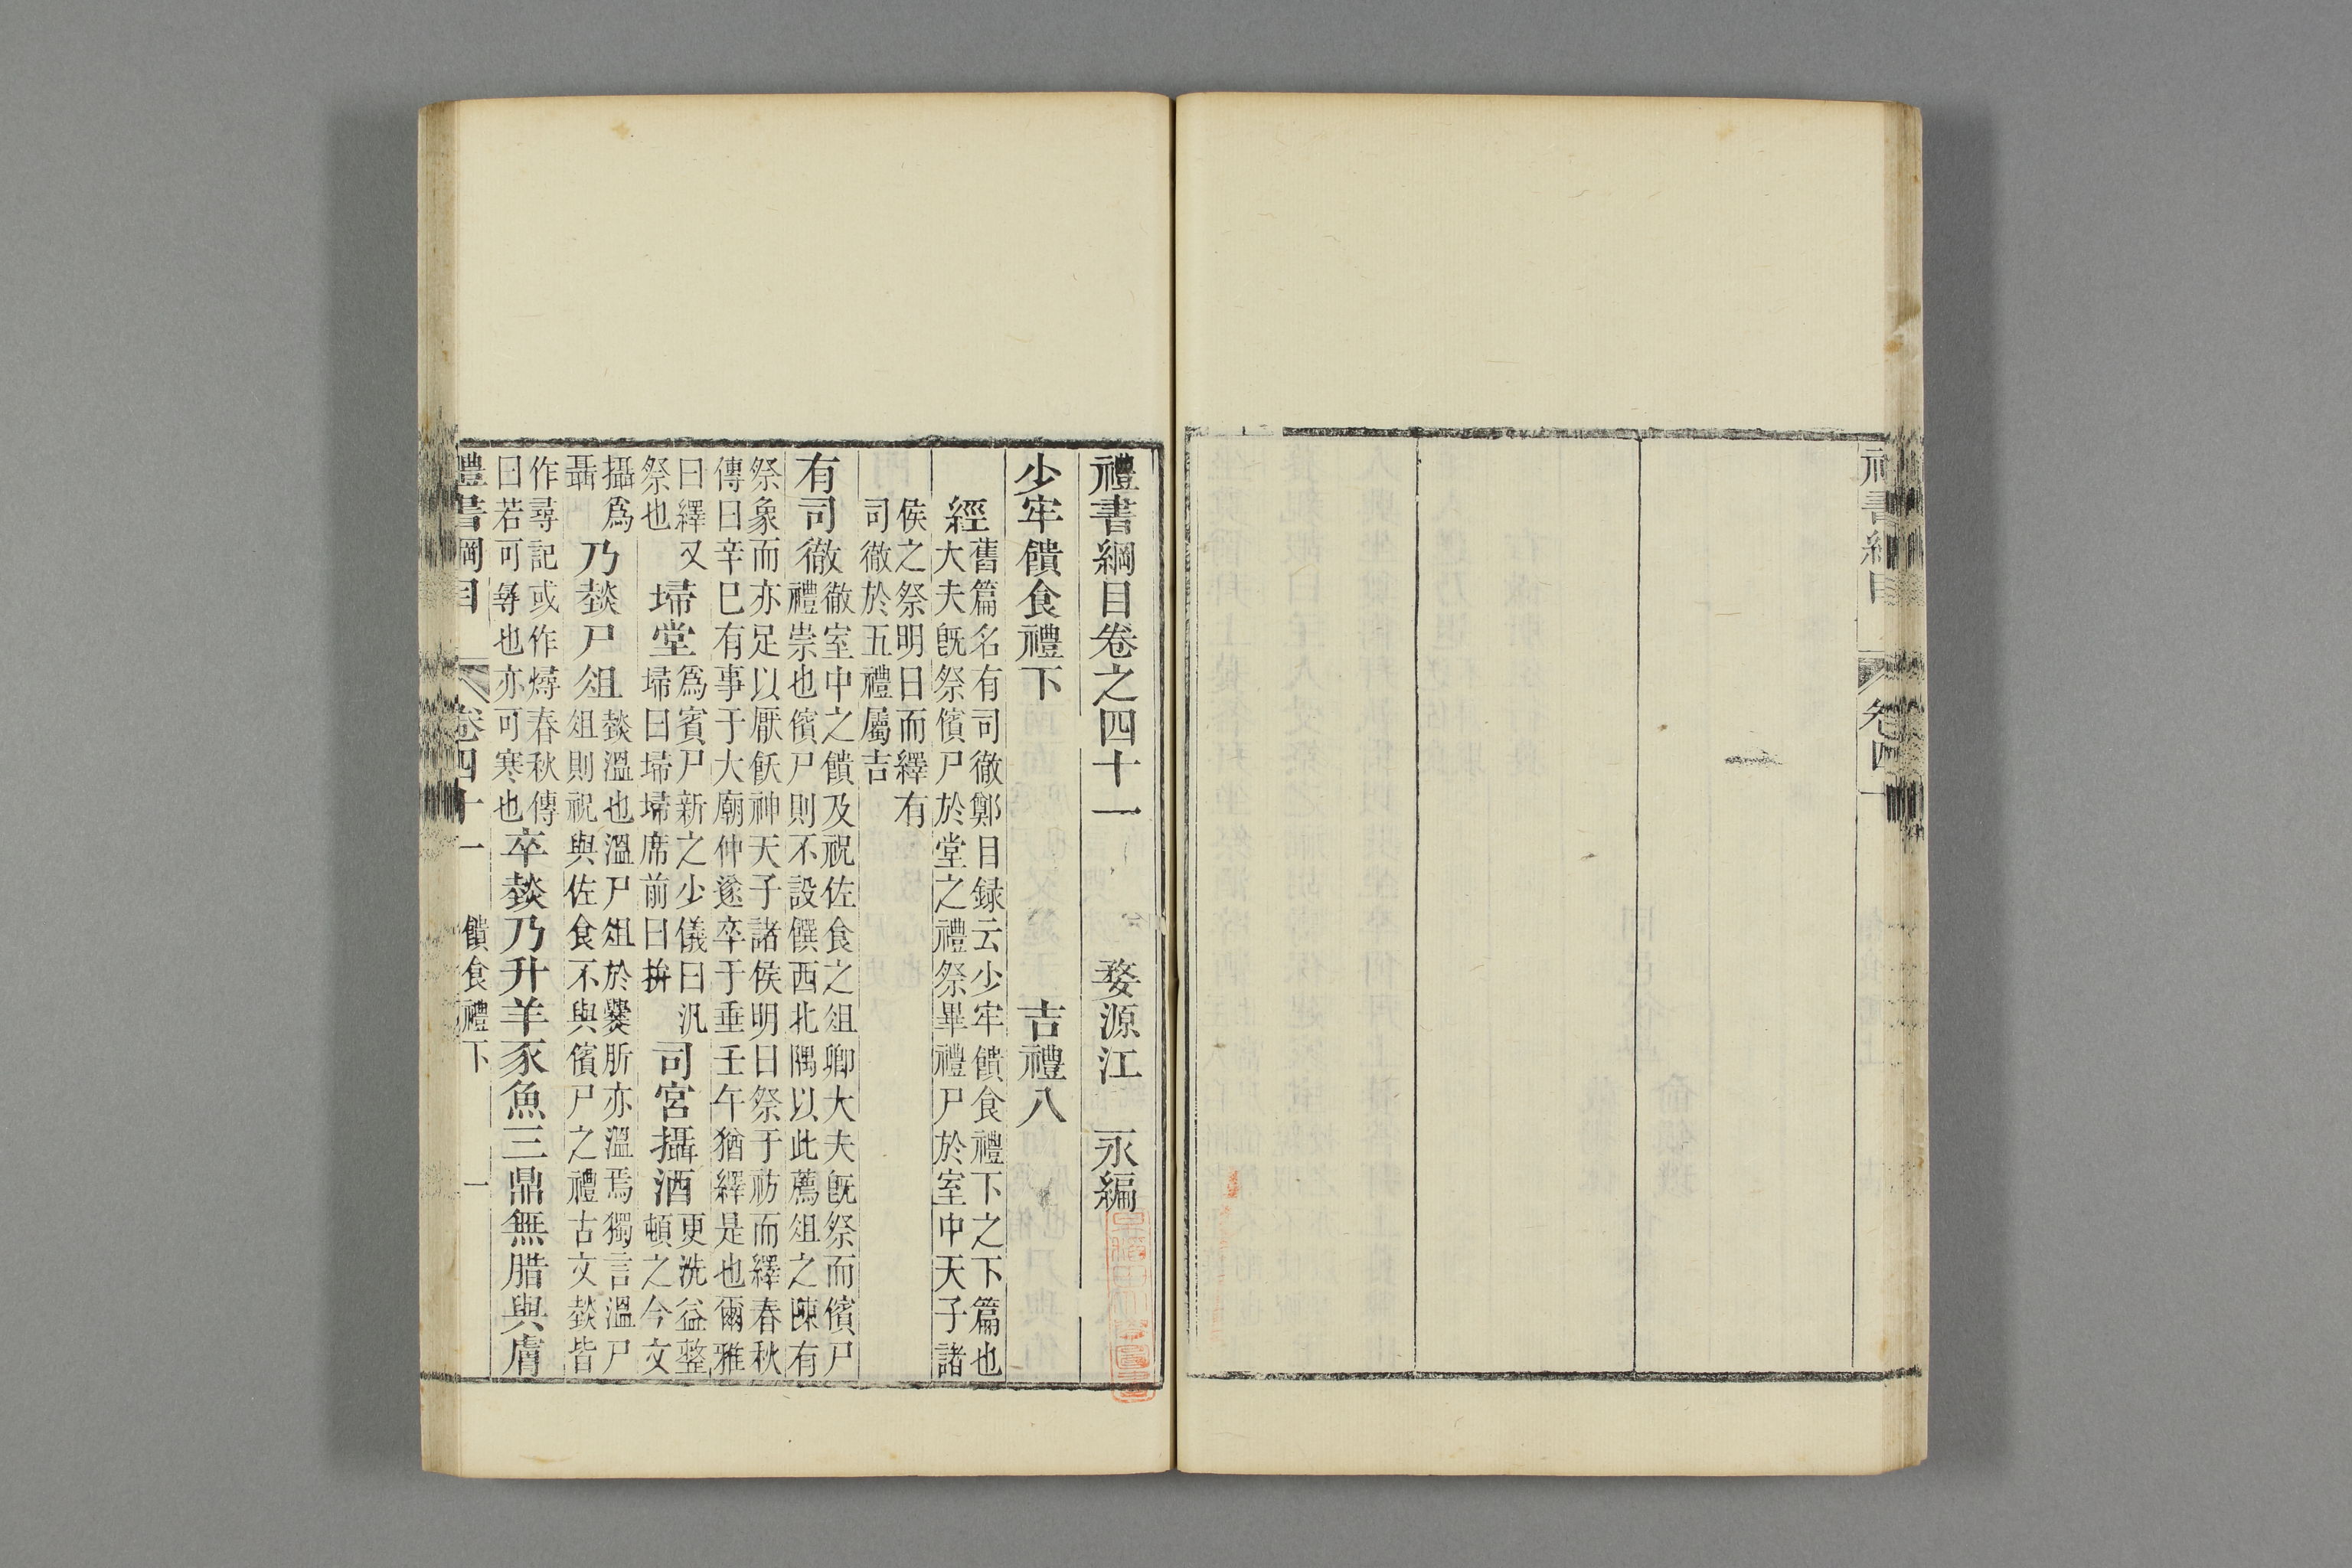 禮書綱目卷之四十一　婺源江　永編
少牢饋食禮下　吉禮八
經舊篇名有司徹鄭目録云少牢饋食禮下之下篇也
大夫旣祭儐尸於堂之禮祭畢禮尸於室中天子諸
侯之祭明日而繹有
司徹於五禮屬吉
有司徹徹室中之饋及祝佐食之俎卿大夫旣祭而儐尸
禮崇也儐尸則不設饌西北隅以此薦俎之陳有
祭象而亦足以厭飫神天子諸侯明日祭于祊而繹春秋
傳曰辛巳有事于大廟仲遂卒于垂壬午猶繹是也爾雅
曰繹又
祭也
埽堂爲賓尸新之少儀曰汎
埽曰埽埽席前曰拚
司宮攝酒更洗益整
頓之今文
攝爲
聶
乃燅尸俎燅溫也溫尸俎於爨肵亦溫焉獨言溫尸
俎則祝與佐食不與儐尸之禮古文燅皆
作尋記或作燖春秋傳
曰若可尋也亦可寒也
卒燅乃升羊豕魚三鼎無腊與膚
禮書綱目　卷四十一　饋食禮下　一